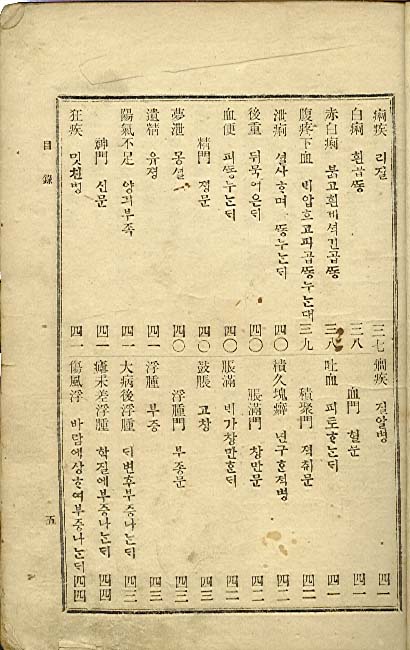 痢疾 리질 三七
白痢 흰곱똥 三八
赤白痢 붉고흰빗셕긴곱똥 三八
腹疼下血 빅압흐고피곱똥누는대 三九
泄痢 셜사ᄒᆞ며똥누는ᄃᆡ 四〇
後重 뒤묵어은ᄃᆡ 四〇
血便 피똥누는ᄃᆡ 四〇
精門 졍문 四〇
夢泄 몽셜 四〇
遺精 유졍 四一
陽氣不足 양긔부족 四一
神門 신문 四一
狂疾 밋친병 四一
癎疾 질알병 四一
血門 혈문 四一
吐血 피토ᄒᆞ는ᄃᆡ 四一
積聚門 젹취문 四二
積久塊癖 년구ᄒᆞᆫ젹병 四二
脹滿門 창만문 四二
脹滿 ᄇᆡ가창만ᄒᆞᆫᄃᆡ 四二
鼓脹 고창 四三
浮腫門 부죵문 四三
浮腫 부죵 四三
大病後浮腫 ᄃᆡ병후부죵나는ᄃᆡ 四三
瘧未差浮腫 학질에부죵나는ᄃᆡ 四四
傷風浮 바람에상ᄒᆞ여부죵나는ᄃᆡ 四四
目錄 五